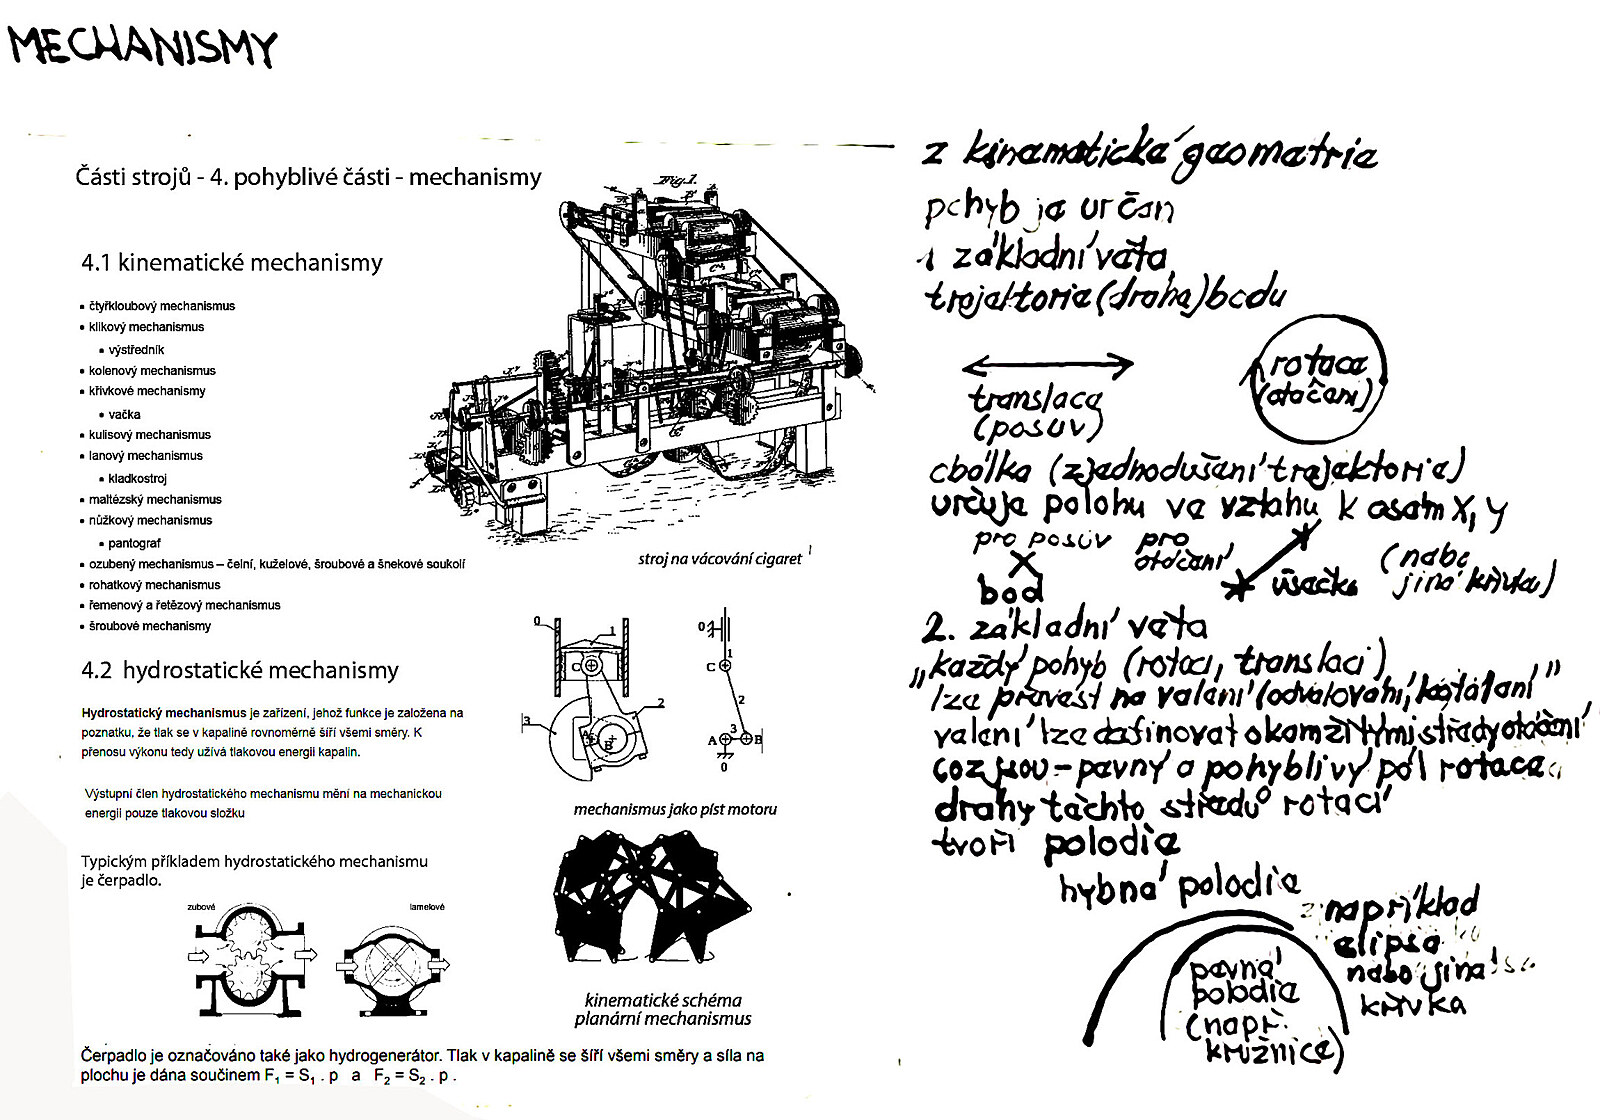 MECHANISMY
Části strojů - 4. pohyblivé části - mechanismy
4.1 kinematické mechanismy
• čtyřkloubový mechanismus
• klikový mechanismus
• výstředník
• kolenový mechanismus
• křivkové mechanismy
• vačka
• kulisový mechanismus
• lanový mechanismus
• kladkostroj
• maltézský mechanismus
• nůžkový mechanismus
• pantograf
• ozubený mechanismus – čelní, kuželové, šroubové a šnekové soukolí
• rohatkový mechanismus
• řemenový a řetězový mechanismus
• šroubové mechanismy
4.2 hydrostatické mechanismy
Hydrostatický mechanismus je zařízení, jehož funkce je založena na
poznatku, že tlak se v kapalině rovnoměrně šíří všemi směry. K
přenosu výkonu tedy užívá tlakovou energii kapalin.
Výstupní člen hydrostatického mechanismu mění na mechanickou
energii pouze tlakovou složku
Typickým příkladem hydrostatického mechanismu
je čerpadlo.
zubové
lamelové
Čerpadlo je označováno také jako hydrogenerátor. Tlak v kapalině se šíří všemi směry a síla na
plochu je dána součinem F₁ = S₁ . p a F₂ = S₂ . p .
Fig. 1.
stroj na vácování cigaret ¹
0
1
C
2
3
A
B
0
1
C
2
3
A
B
0
mechanismus jako píst motoru
kinematické schéma
planární mechanismus
z kinematické geometrie
pohyb je určen
1 základní věta
trajektorie (dráha) bodu
translace
(posuv)
rotace
(otáčení)
obálka (zjednodušení trajektorie)
určuje polohu ve vztahu k osám X, Y
pro posuv
bod
pro
otáčení
úsečka
(nebo
jiná křivka)
2. základní věta
„každý pohyb (rotaci, translaci)
lze převést na valení (odvalování, kotálení)"
valení lze definovat okamžitými středy otáčení
což jsou - pevný a pohyblivý pól rotace
dráhy těchto středů rotací
tvoří polodie
hybná polodie
například
elipsa
nebo jiná
křivka
pevná
polodie
(např.
kružnice)